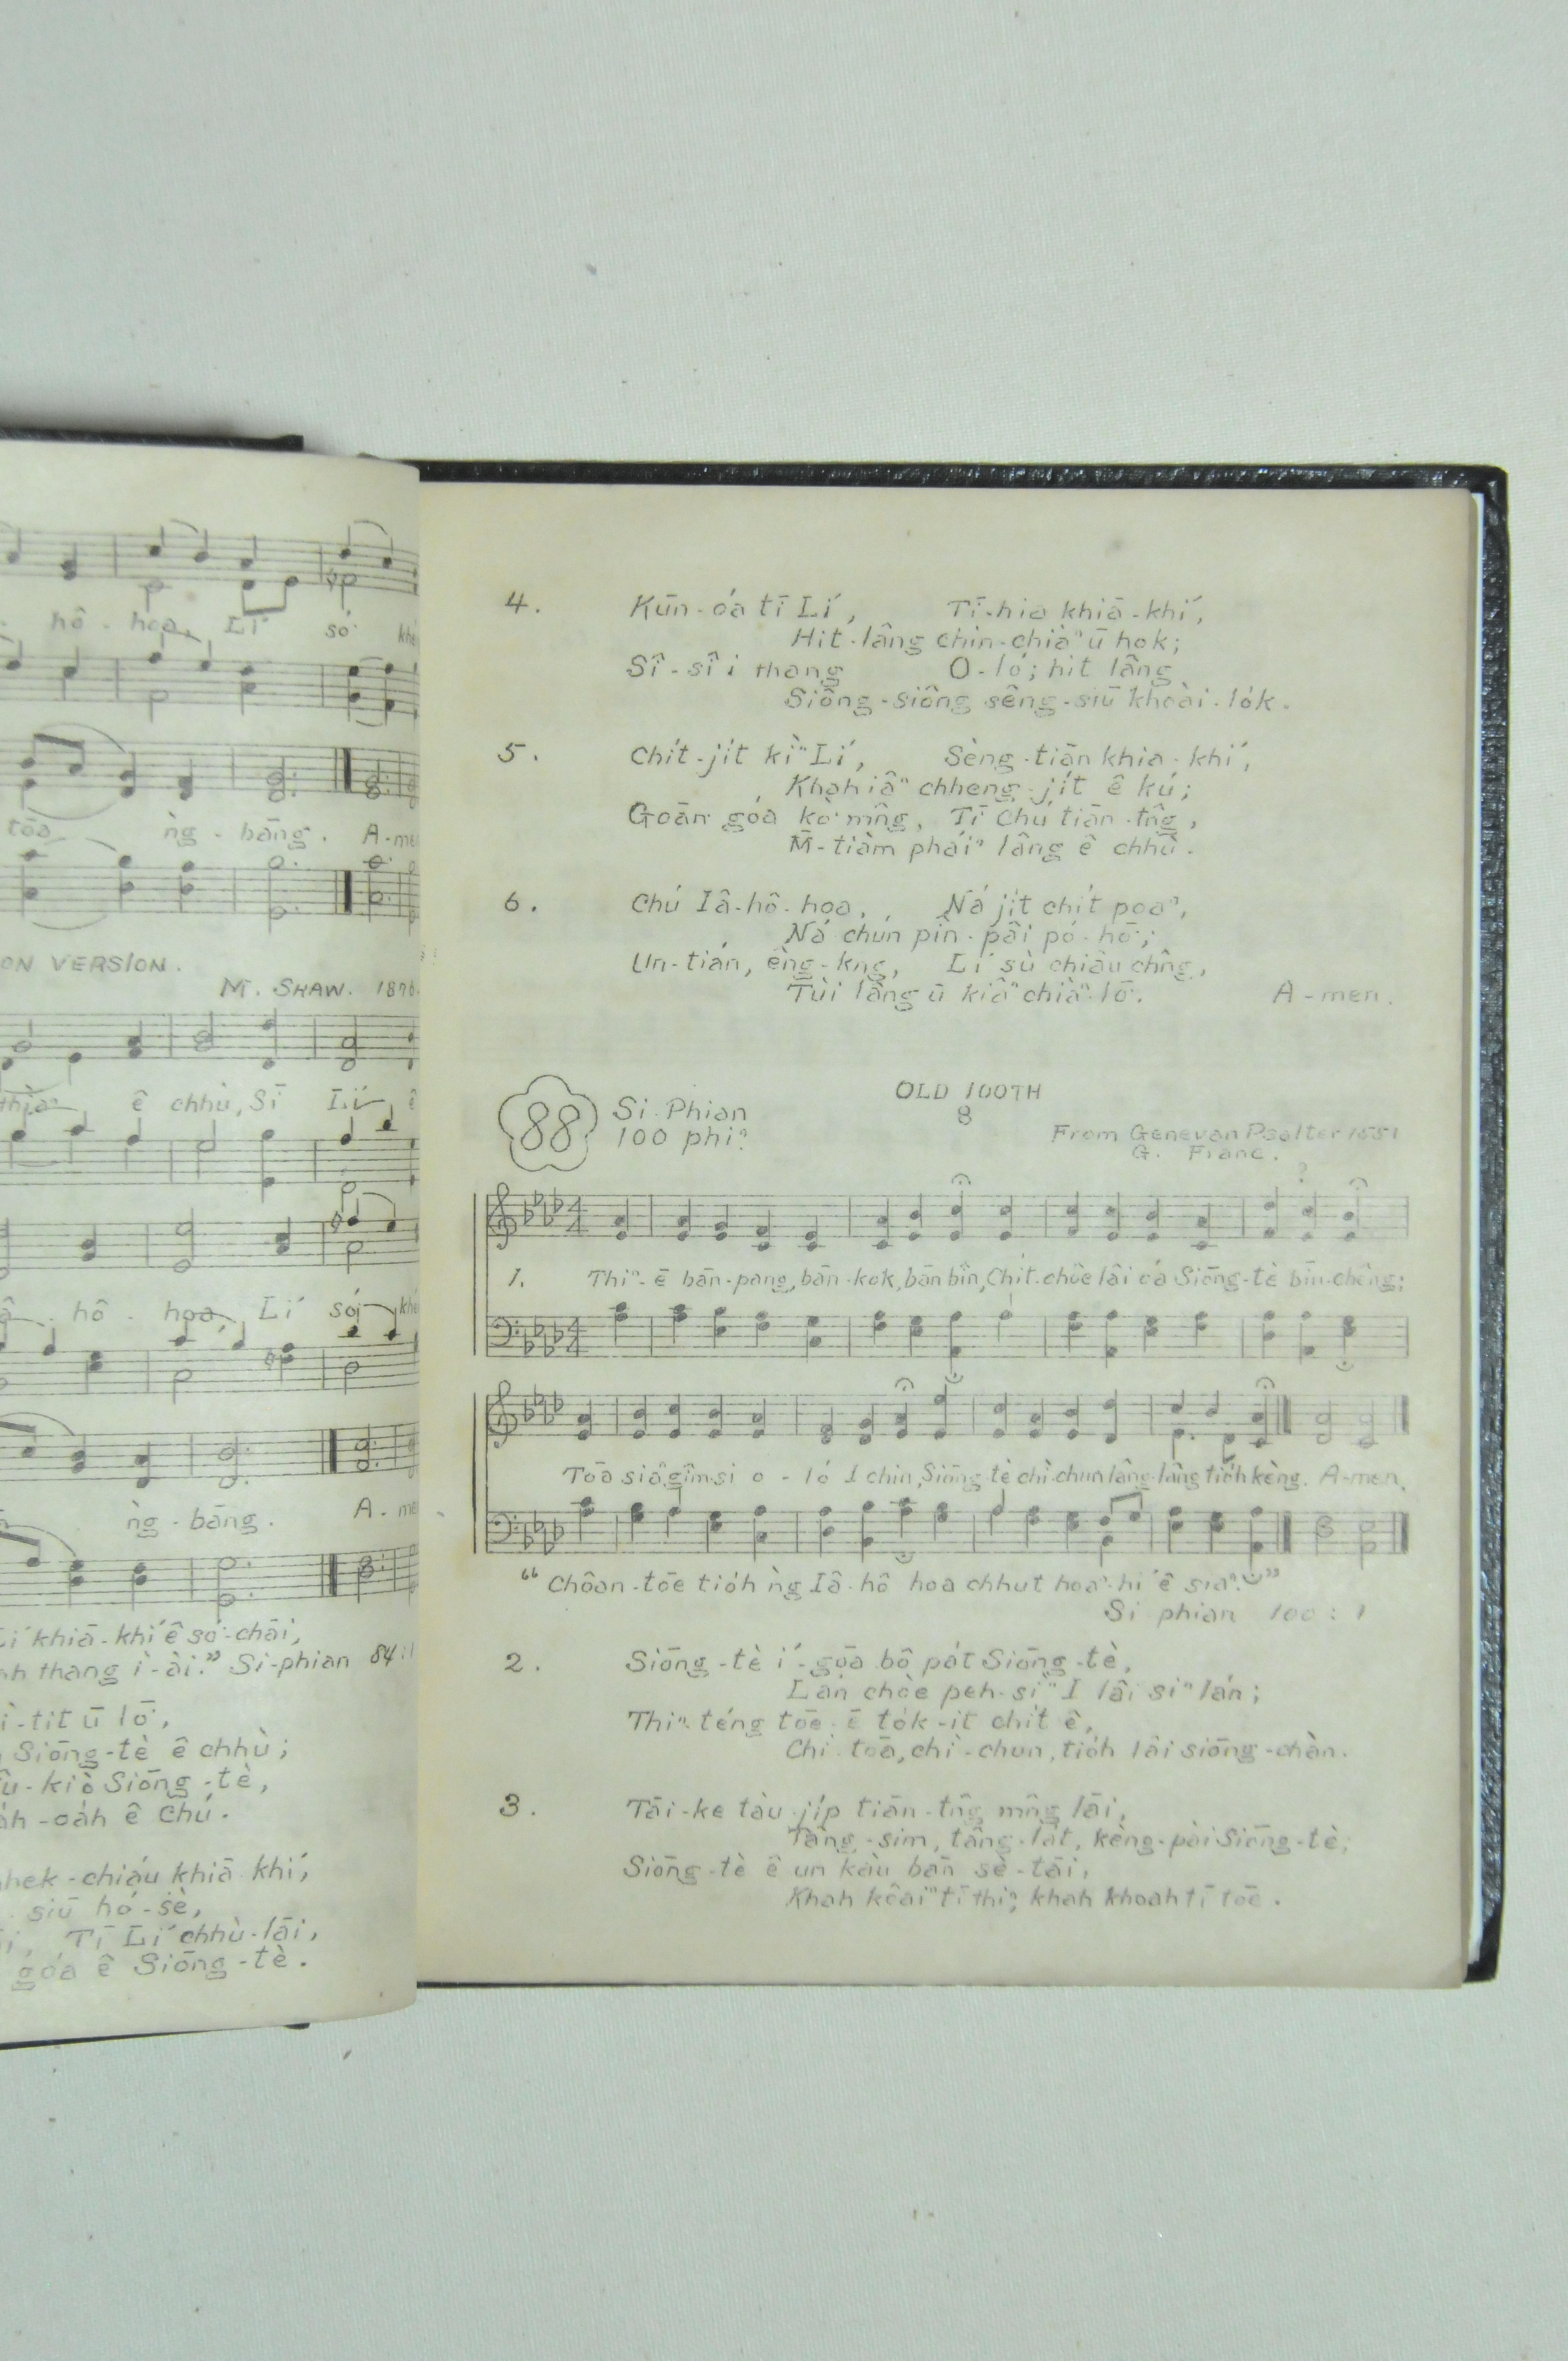 hô - hoa, Lí só͘
tōa ǹg - bāng. A-me
ON VERSION.
M. SHAW. 1898.
ê chhù, Sī Lí ê
hô - hoa, Lí só͘ khé
ǹg - bāng. A-me
Lí khiā-khí ê só͘-chāi,
thang ì-ài." Si-phian 84:1
ì-tit ū lō͘,
Siōng-tè ê chhù;
û-kiò Siōng-tè,
ah-oa̍h ê Chú.
hek-chiáu khiā-khí,
siū hó-sè,
Tī Lí chhù-lāi,
góa ê Siōng-tè.
4. Kūn-óa tī Lí, Tī-hia khiā-khí,
Hit-lâng chin-chiàⁿ ū hok;
Sî-sî i thang O-ló; hit lâng
Siông-siông sêng-siū khoài-lo̍k.
5. Chi̍t-ji̍t kìⁿ Lí, Sèng-tiān khia-khí,
Khah iâⁿ chheng-ji̍t ê kú;
Goān góa kò͘ mn̂g, Tī Chú tiān-tn̂g,
M̄-tiàm pháiⁿ lâng ê chhù.
6. Chú Iâ-hô-hoa, Ná ji̍t chi̍t poaⁿ,
Ná chún pîn-pâi pó-hō͘;
Un-tián, êng-kng, Lí sù chiâu chn̂g,
Tùi lâng ū kiâⁿ chiàⁿ-lō͘. A-men.
88 Si-Phian
100 phiⁿ
OLD 100TH
8
From Genevan Psalter 1551
G. Franc.
1. Thiⁿ-ē bān-pang, bān-kok, bān bîn, Chi̍t-chôe lâi óa Siōng-tè bīn-chêng;
Tōa siâⁿ gîm-si o-ló I chin, Siōng-tè chì-chun lâng-lâng tio̍h kèng. A-men.
"Choân-tōe tio̍h ǹg Iâ-hô-hoa chhut hoaⁿ-hí ê siaⁿ."
Si-phian 100:1
2. Siōng-tè í-gōa bô pa̍t Siōng-tè,
Lán chòe peh-sìⁿ I lâi siⁿ lán;
Thiⁿ-téng tōe-ē to̍k-it chi̍t ê,
Chì-toā, chì-chun, tio̍h lâi siōng-chàn.
3. Tāi-ke tàu-ji̍p tiān-tn̂g mn̂g lāi,
Tâng-sim, tâng-la̍t, kèng-pài Siōng-tè;
Siōng-tè ê un kàu bān sè-tāi,
Khah koâiⁿ tī thiⁿ, khah khoah tī tōe.